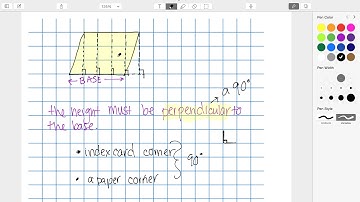 BASE
a 90°
the height must be perpendicular to
the base.
• index card corner
90°
• a paper corner
Pen Color
Pen Width
Pen Style